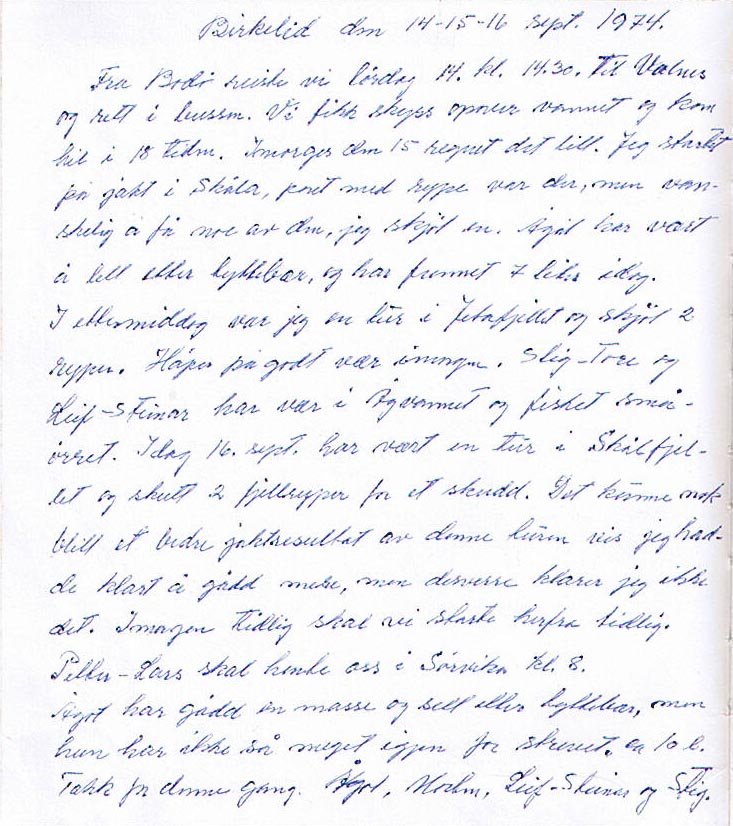 Birkelid den 14-15-16 sept. 1974.
Fra Bodø reiste vi lørdag 14. kl. 14.30. til Valnes
og rett i bussen. Vi fikk skyss opover vannet og kom
hit i 18 tiden. Imorges den 15 regnet det litt. Jeg startet
på jakt i Skåla, port med rype var der, men van-
skelig å få noe av den, jeg skjøt en. Ågot har vært
å lett etter tyttebær, og har funnet 7 liter idag.
I ettermiddag var jeg en tur i fjellet og skjøt 2
ryper. Håper på godt vær imorgen. Stig-Tore og
Leif-Steinar har vær i Ågvannet og fisket små-
ørret. Idag 16. sept. har vært en tur i Skålfjel-
let og skutt 2 fjellryper for et skudd. Det kunne nok
blitt et bedre jaktresultat av denne turen vis jeg had-
de klart å gådd mere, men desverre klarer jeg ikke
det. Imorgen tidlig skal vi starte herfra tidlig.
Petter-Lars skal hente oss i Sørvika kl. 8.
Ågot har gådd en masse og sett etter tyttebær, men
hun har ikke så meget igjen for strevet, ca 10 l.
Takk for denne gang. Ågot, Leif-Steinar og Stig.